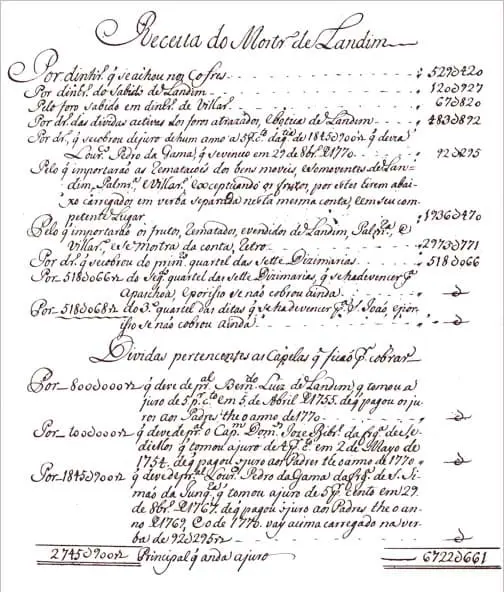 Receita do Mostr.º de Landim
Por dinhr.º q̃ se achou nos Cofres - - - 529∂420
Por dinhr.º do Sabido de Landim - - - 120∂927
Pelo foro Sabido em dinhr.º de Villar - - - 67∂820
Por dr.º das dividas activas dos foros atrazados, e botica de Landim - - - 483∂892
Por dr.º, q̃ se cobrou de juro de hum anno a 5 p.r c.to da q.tia de 1845∂900 rz q̃ devia
Lour.º Pedro da Gama, q̃ se venceo em 29 de 8br.º 1770 - - - 92∂295
Pelo q̃ importarão as Rematações dos bens moveis, e semoventes de Lan-
dim, Palmr.ª, e Villar, exceptuando os frutos, por estes hirem abai-
xo carregados em verba separada nesta mesma conta, e em seu com-
petente Lugar - - - 1736∂470
Pelo q̃ importarão os frutos, rematados, e vendidos de Landim, Palmr.ª, e
Villar, e se mostra da conta, retro - - - 2973∂771
Por dr.º q̃ se cobrou do prim.º quartel das Sette Dizimarias - - - 518∂066
Por 518∂066 rz do Seg.do quartel das Sette Dizimarias, q̃ se hade vencer p.ª
a paschoa, e por isso se não cobrou ainda - - -
Por 518∂068 rz do 3.º quartel das ditas q̃ se hade vencer p.ª S. João, e por
isso se não cobrou ainda - - -
Dividas pertencentes as Capelas q̃ ficão p.ª cobrar
Por 800∂000 rz q̃ deve de pr.al Bern.do Luiz de Landim, q̃ tomou a
juro de 5 p.r c.to em 5 de Abril 1755. de q̃ pagou os ju-
ros aos Padres the o anno de 1770
Por 100∂000 rz q̃ deve de pr.al o Cap.m Dom.os Joze Ribr.º da frg.ª de Se-
dielos q̃ tomou a juro de 4 p.r c.to em 2 de Mayo de
1754. de q̃ pagou o juro aos Padres the o anno de 1770
Por 1845∂900 rz q̃ deve de pr.al Lour.º Pedro da Gama da frg.ª de S. Si-
mão da Junq.ª q̃ tomou a juro de 5 p.r cento em 29.
de 8br.º 1767. de q̃ pagou o juro aos Padres the o an-
no 1769, e o de 1770. vay acima carregado na ver-
ba de 92∂295 rz
2745∂900 rz Principal q̃ anda a juro 6722∂661